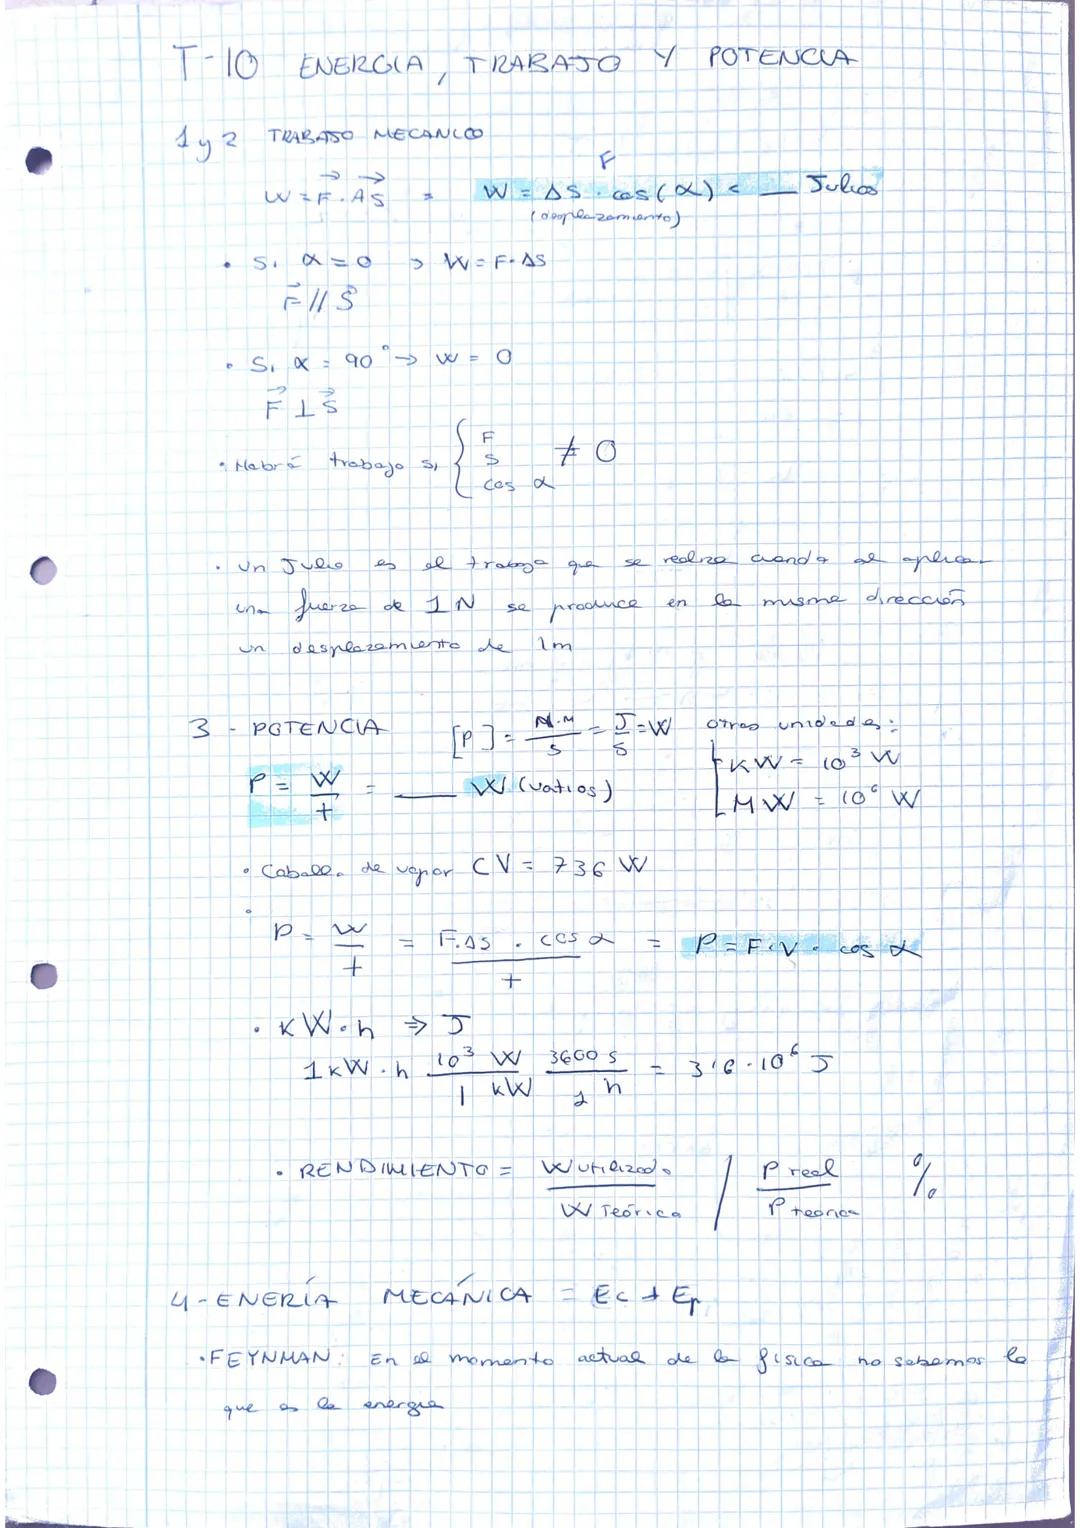 T-10 ENERGIA, TRABAJO Y POTENCIA
1 y 2 TRABAJO MECANICO
F
W = F · ΔS = W = ΔS · cos(α) = __ Julios
(desplazamiento)
• Si α = 0 → W = F · ΔS
F // S
• Si α = 90° → W = 0
F ⊥ S
• Habrá trabajo si { F S cos α ≠ 0
• Un Julio es el trabajo que se realiza cuando al aplicar
una fuerza de 1 N se produce en la misma dirección
un desplazamiento de 1m
3 - POTENCIA [P] = N·M/s = J/s = W otras unidades:
KW = 10³ W
P = W/t = __ W (vatios) MW = 10⁶ W
• Caballo de vapor CV = 736 W
• P = W/t = F·ΔS · cos α / t = P = F·V · cos α
• KW·h ⇒ J
1 KW·h 10³ W / 1 kW 3600 s / 1 h = 3'6·10⁶ J
• RENDIMIENTO = W utilizado / W Teórica / P real / P teorica %
4 - ENERÍA MECÁNICA = Ec + Ep
• FEYNMAN: En el momento actual de la física no sabemos lo
que es la energia